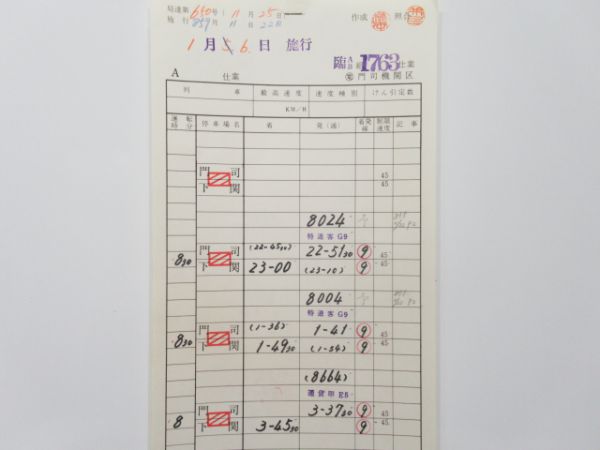 局達第 650号 11月 25日
施行 859号 11月 22日
作成 照合
1月 5 6.日 施行
臨 A B 組 1763 仕業
A 仕業
機 門司機関区
列車 最高速度 速度種別 けん引定数
KM/H
運転時分 停車場名 着 発(通) 着発線 制限速度 記事
門司 45
下関 45
8024
特通客 G9
830 門司 (22-4530) 22-5130 9 45
下関 23-00 (23-10) 9 45
8004
特通客 G9
830 門司 (1-36) 1-41 9 45
下関 1-4930 (1-54) 9 45
(8664)
通貨甲 E5
8 門司 3-3730 9 45
下関 3-4530 9